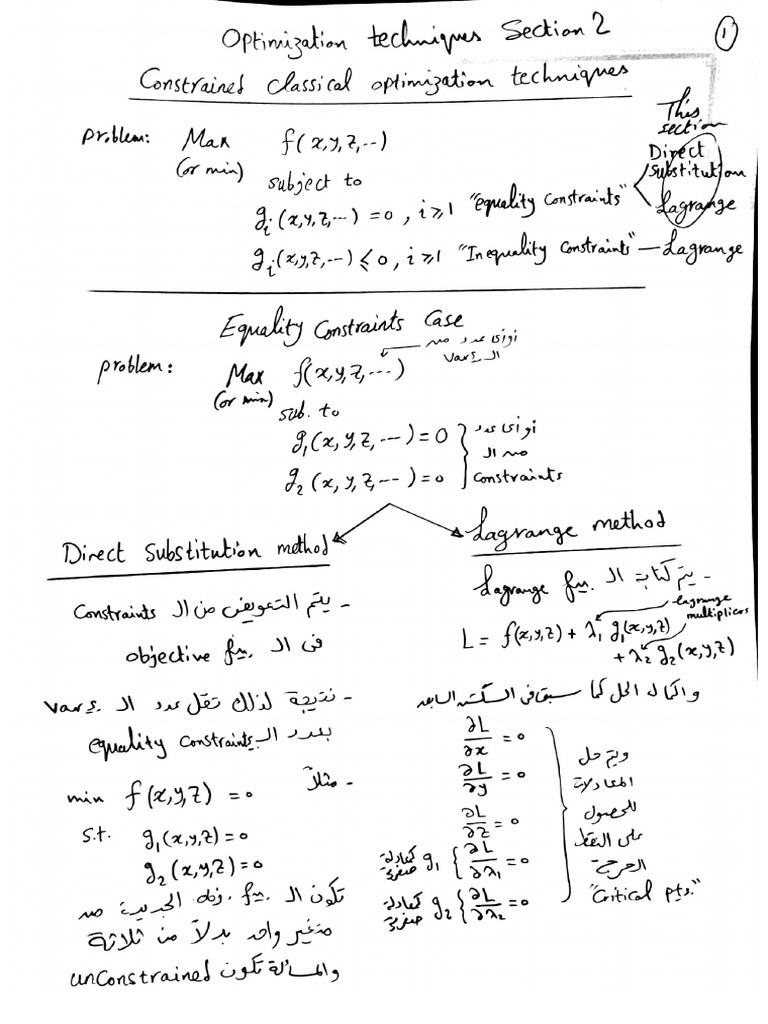 Optimization techniques Section 2
1
Constrained classical optimization techniques
This section
problem: Max f(x,y,z,...)
(or min)
subject to
g_i(x,y,z,...) = 0, i ≥ 1 "equality constraints"
Direct substitution
Lagrange
g_i(x,y,z,...) ≤ 0, i ≥ 1 "Inequality constraints" — Lagrange
Equality Constraints Case
problem: Max f(x,y,z,...)
(or min)
أو أى عدد من
الـ vars
sub. to
g₁(x,y,z,...) = 0
g₂(x,y,z,...) = 0
أو أى عدد
من الـ
constraints
Direct Substitution method
- يتم التعويض من الـ constraints
فى الـ objective fn.
- نتيجة لذلك تقل عدد الـ vars
بعدد الـ equality constraints
- مثلاً
min f(x,y,z) = 0
s.t. g₁(x,y,z) = 0
g₂(x,y,z) = 0
تكون الـ obj. fn. الجديدة من
متغير واحد بدلاً من ثلاثة
والمسألة تكون unconstrained
Lagrange method
- يتم كتابة الـ Lagrange fn.
lagrange multipliers
L = f(x,y,z) + λ₁ g₁(x,y,z)
+ λ₂ g₂(x,y,z)
واكمال الحل كما سبق فى السكشن السابق
∂L/∂x = 0
∂L/∂y = 0
∂L/∂z = 0
كمعادلة صفرية g₁ { ∂L/∂λ₁ = 0
كمعادلة صفرية g₂ { ∂L/∂λ₂ = 0
ويتم حل
المعادلات
للحصول
على النقط
الحرجة
"Critical pts."